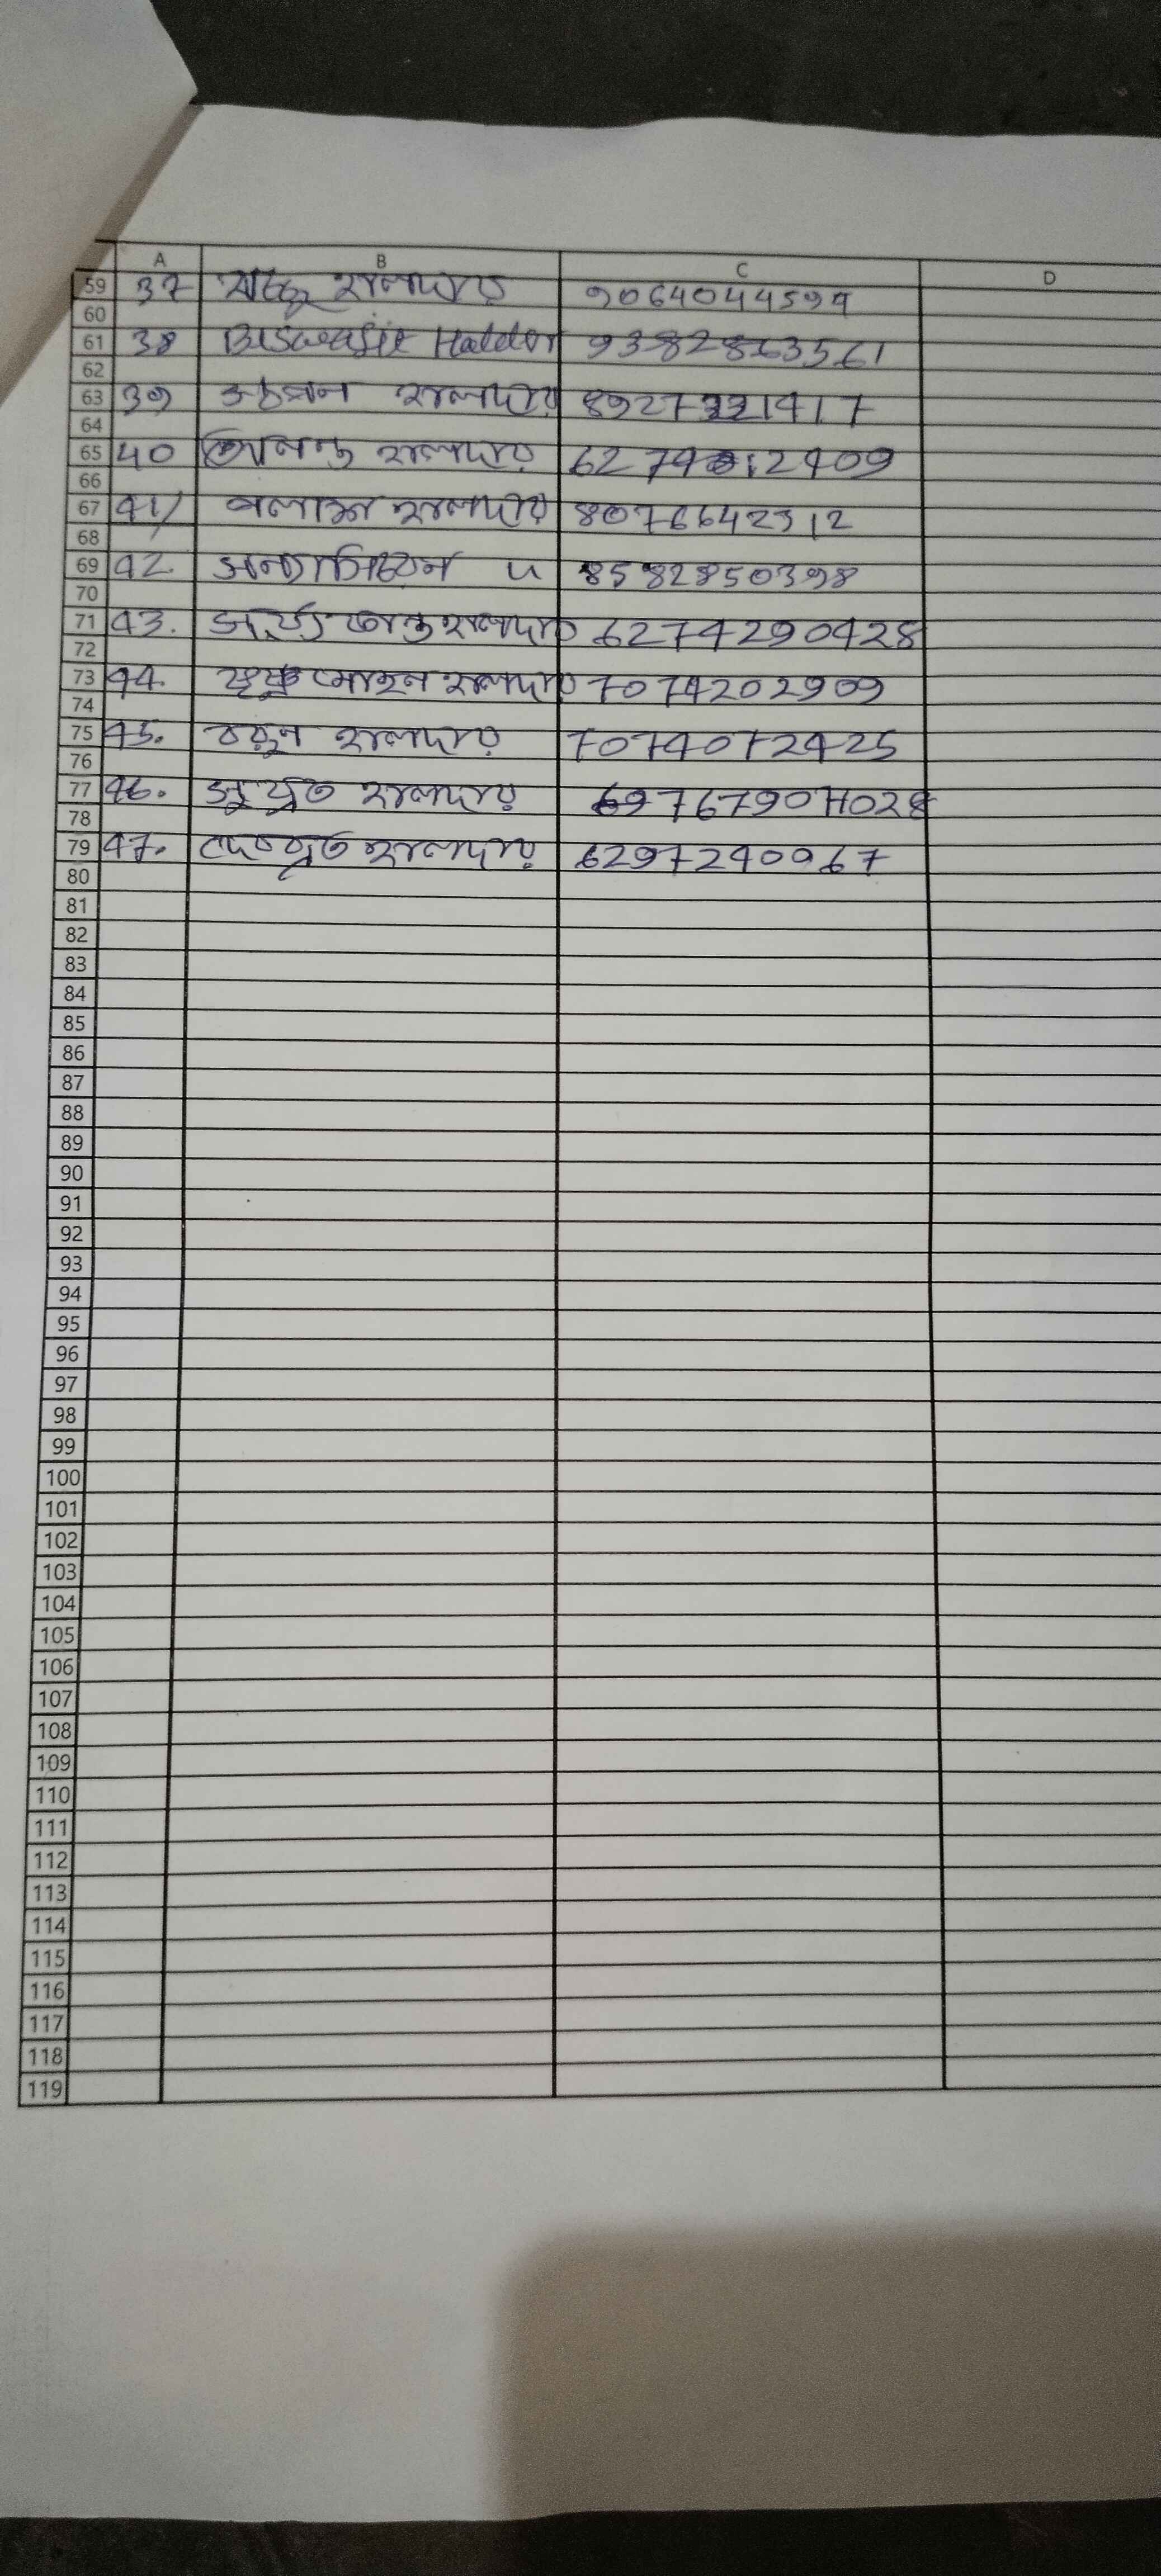 A B C D
59 37 হালদার 9064044594
60
61 38 Biswajit Haldar 9382863561
62
63 39 হালদার 8927321417
64
65 40 আনন্দ হালদার
66
67 41/ পলাশ হালদার 8076642312
68
69 42. 〃 8582850398
70
71 43. হালদার 6274290428
72
73 44. মোহন হালদার 7074202909
74
75 45. বরুন হালদার 7074072425
76
77 46. সুব্রত হালদার
78
79 47. দেবব্রত হালদার 6297240967
80
81
82
83
84
85
86
87
88
89
90
91
92
93
94
95
96
97
98
99
100
101
102
103
104
105
106
107
108
109
110
111
112
113
114
115
116
117
118
119